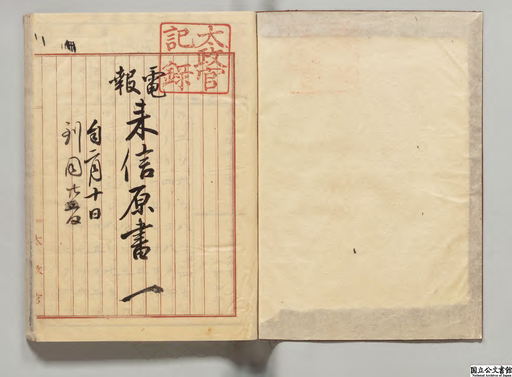 太政官
記録
電報
来信原書 一
自二月十日
到同廿五日
太政官
国立公文書館
National Archives of Japan